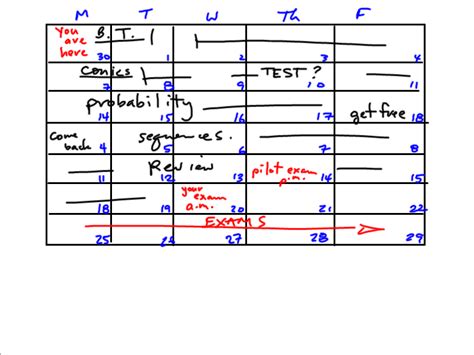 M T W Th F
You are here B. T.
30 1 2 3 4
Conics TEST?
7 8 9 10 11
probability get free
14 15 16 17 18
Come back sequences.
4 5 6 7 8
Review pilot exam a.m.
11 12 13 14 15
your exam a.m.
18 19 20 21 22
EXAMS
25 26 27 28 29